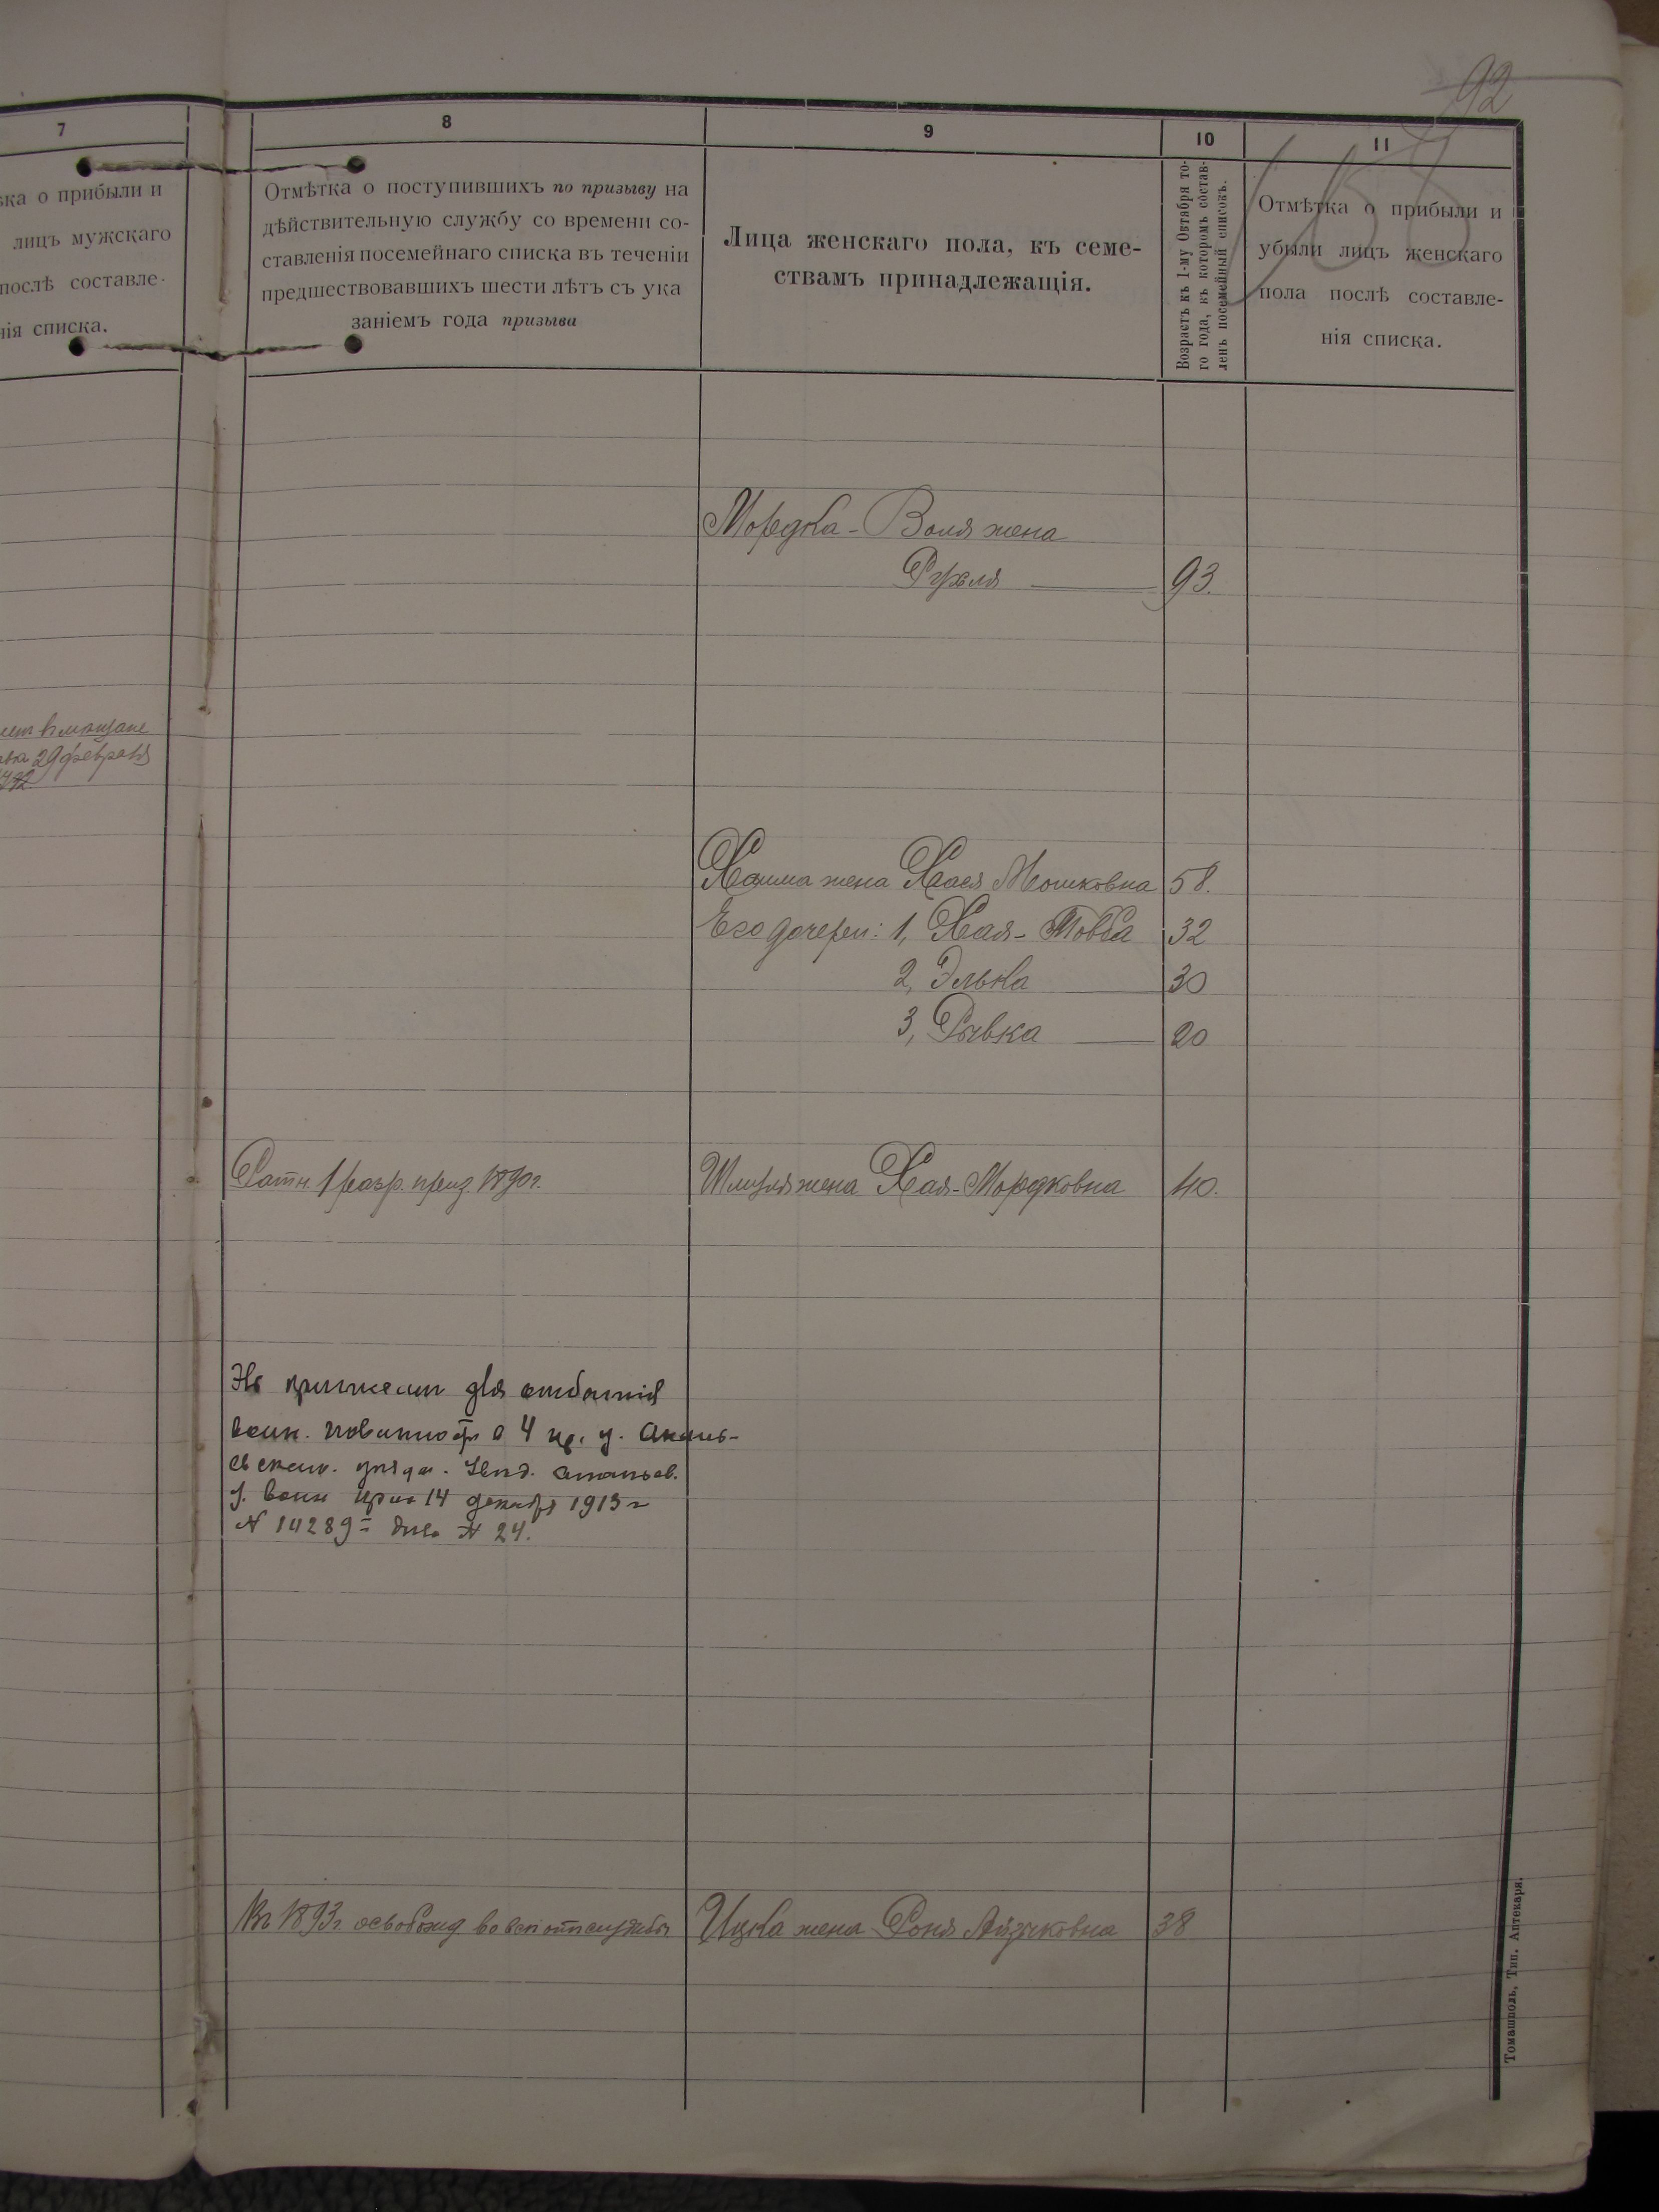 92
188
7
вка о прибыли и
лицъ мужскаго
послѣ составле-
нія списка.
29 февраля
8
Отмѣтка о поступившихъ по призыву на
дѣйствительную службу со времени со-
ставленія посемейнаго списка въ теченіи
предшествовавшихъ шести лѣтъ съ ука
заніемъ года призыва
9
Лица женскаго пола, къ семе-
ствамъ принадлежащія.
10
Возрастъ къ 1-му Октября то-
го года, къ которомъ состав-
ленъ посемейный списокъ.
11
Отмѣтка о прибыли и
убыли лицъ женскаго
пола послѣ составле-
нія списка.
Мордка-Воля жена
Рухля 93.
Хаима жена Хася Мошковна 58.
Его дочери: 1, Хая-Товба 32
2, Элька 30
3, Рывка 20
Ратн. 1 разр. приз. 1890 г.
Шмуля жена Хая-Мордковна 40.
для отбытія
воин. 4
14 декабр 1913 г
N 14289 дѣло N 24.
Въ 1893 г. освобожд. во вси отъ службы
Ицка жена Роня Айзиковна 38
Томашполь, Тип. Аптекаря.